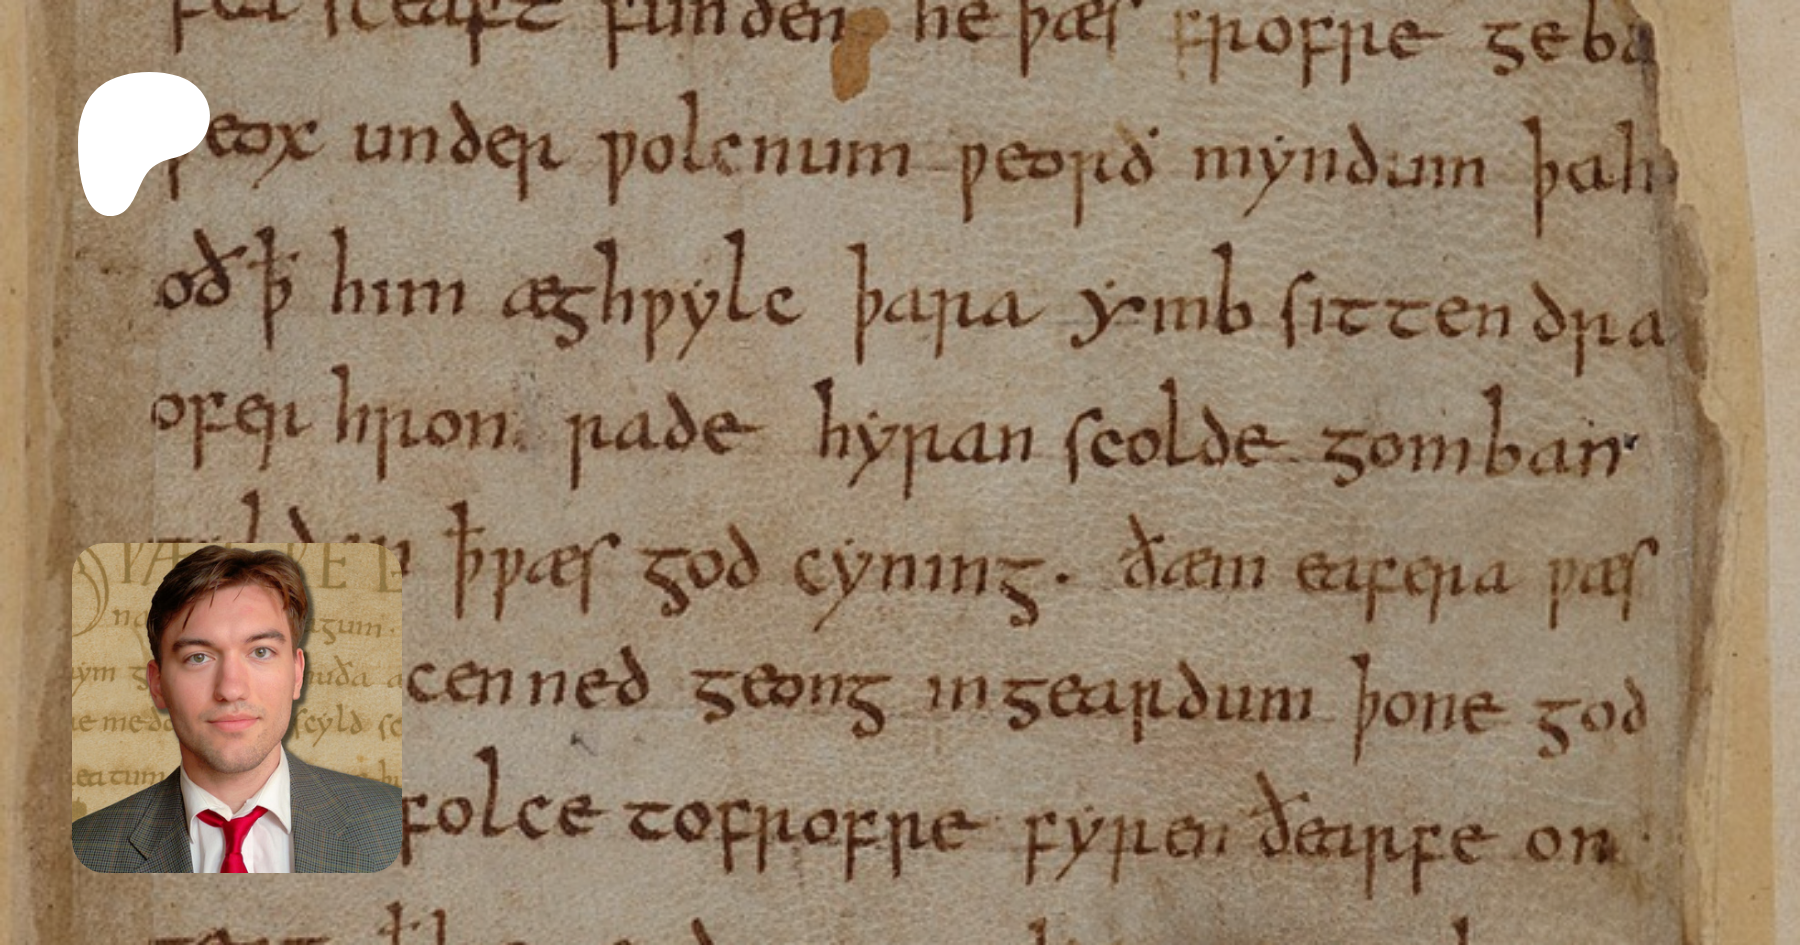 sceaft funden he þæs frofre geba
weox under wolcnum weorð myndum þah
oð ꝥ him æghwylc þara ymb sittendra
ofer hron rade hyran scolde gomban
ꝥ wæs god cyning. ðæm eafera wæs
cenned geong in geardum þone god
folce tofrofre fyren ðearfe on